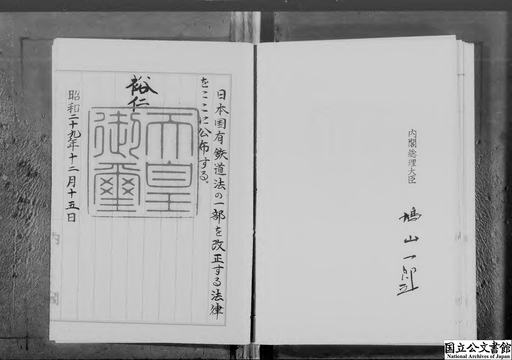 日本国有鉄道法の一部を改正する法律
をここに公布する。
裕仁
天皇
御璽
昭和二十九年十二月十五日
内閣総理大臣
鳩山一郎
国立公文書館
National Archives of Japan